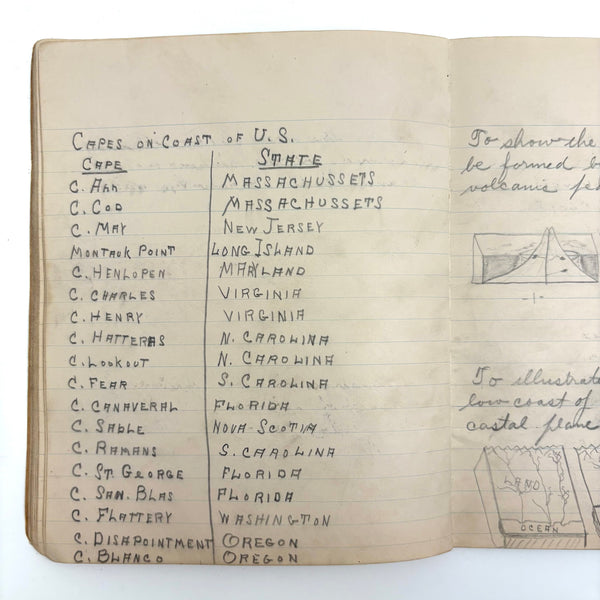 CAPES ON COAST OF U.S.
CAPE STATE
C. ANN MASSACHUSSETS
C. COD MASSACHUSSETS
C. MAY NEW JERSEY
MONTAUK POINT LONG ISLAND
C. HENLOPEN MARYLAND
C. CHARLES VIRGINIA
C. HENRY VIRGINIA
C. HATTERAS N. CAROLINA
C. LOOKOUT N. CAROLINA
C. FEAR S. CAROLINA
C. CANAVERAL FLORIDA
C. SABLE NOVA-SCOTIA
C. ROMANS S. CAROLINA
C. ST. GEORGE FLORIDA
C. SAN. BLAS FLORIDA
C. FLATTERY WASHINGTON
C. DISAPOINTMENT OREGON
C. BLANCO OREGON
To show the
be formed b
volcanic fe
-1-
To illustrate
low coast of
castal plane
LAND
OCEAN